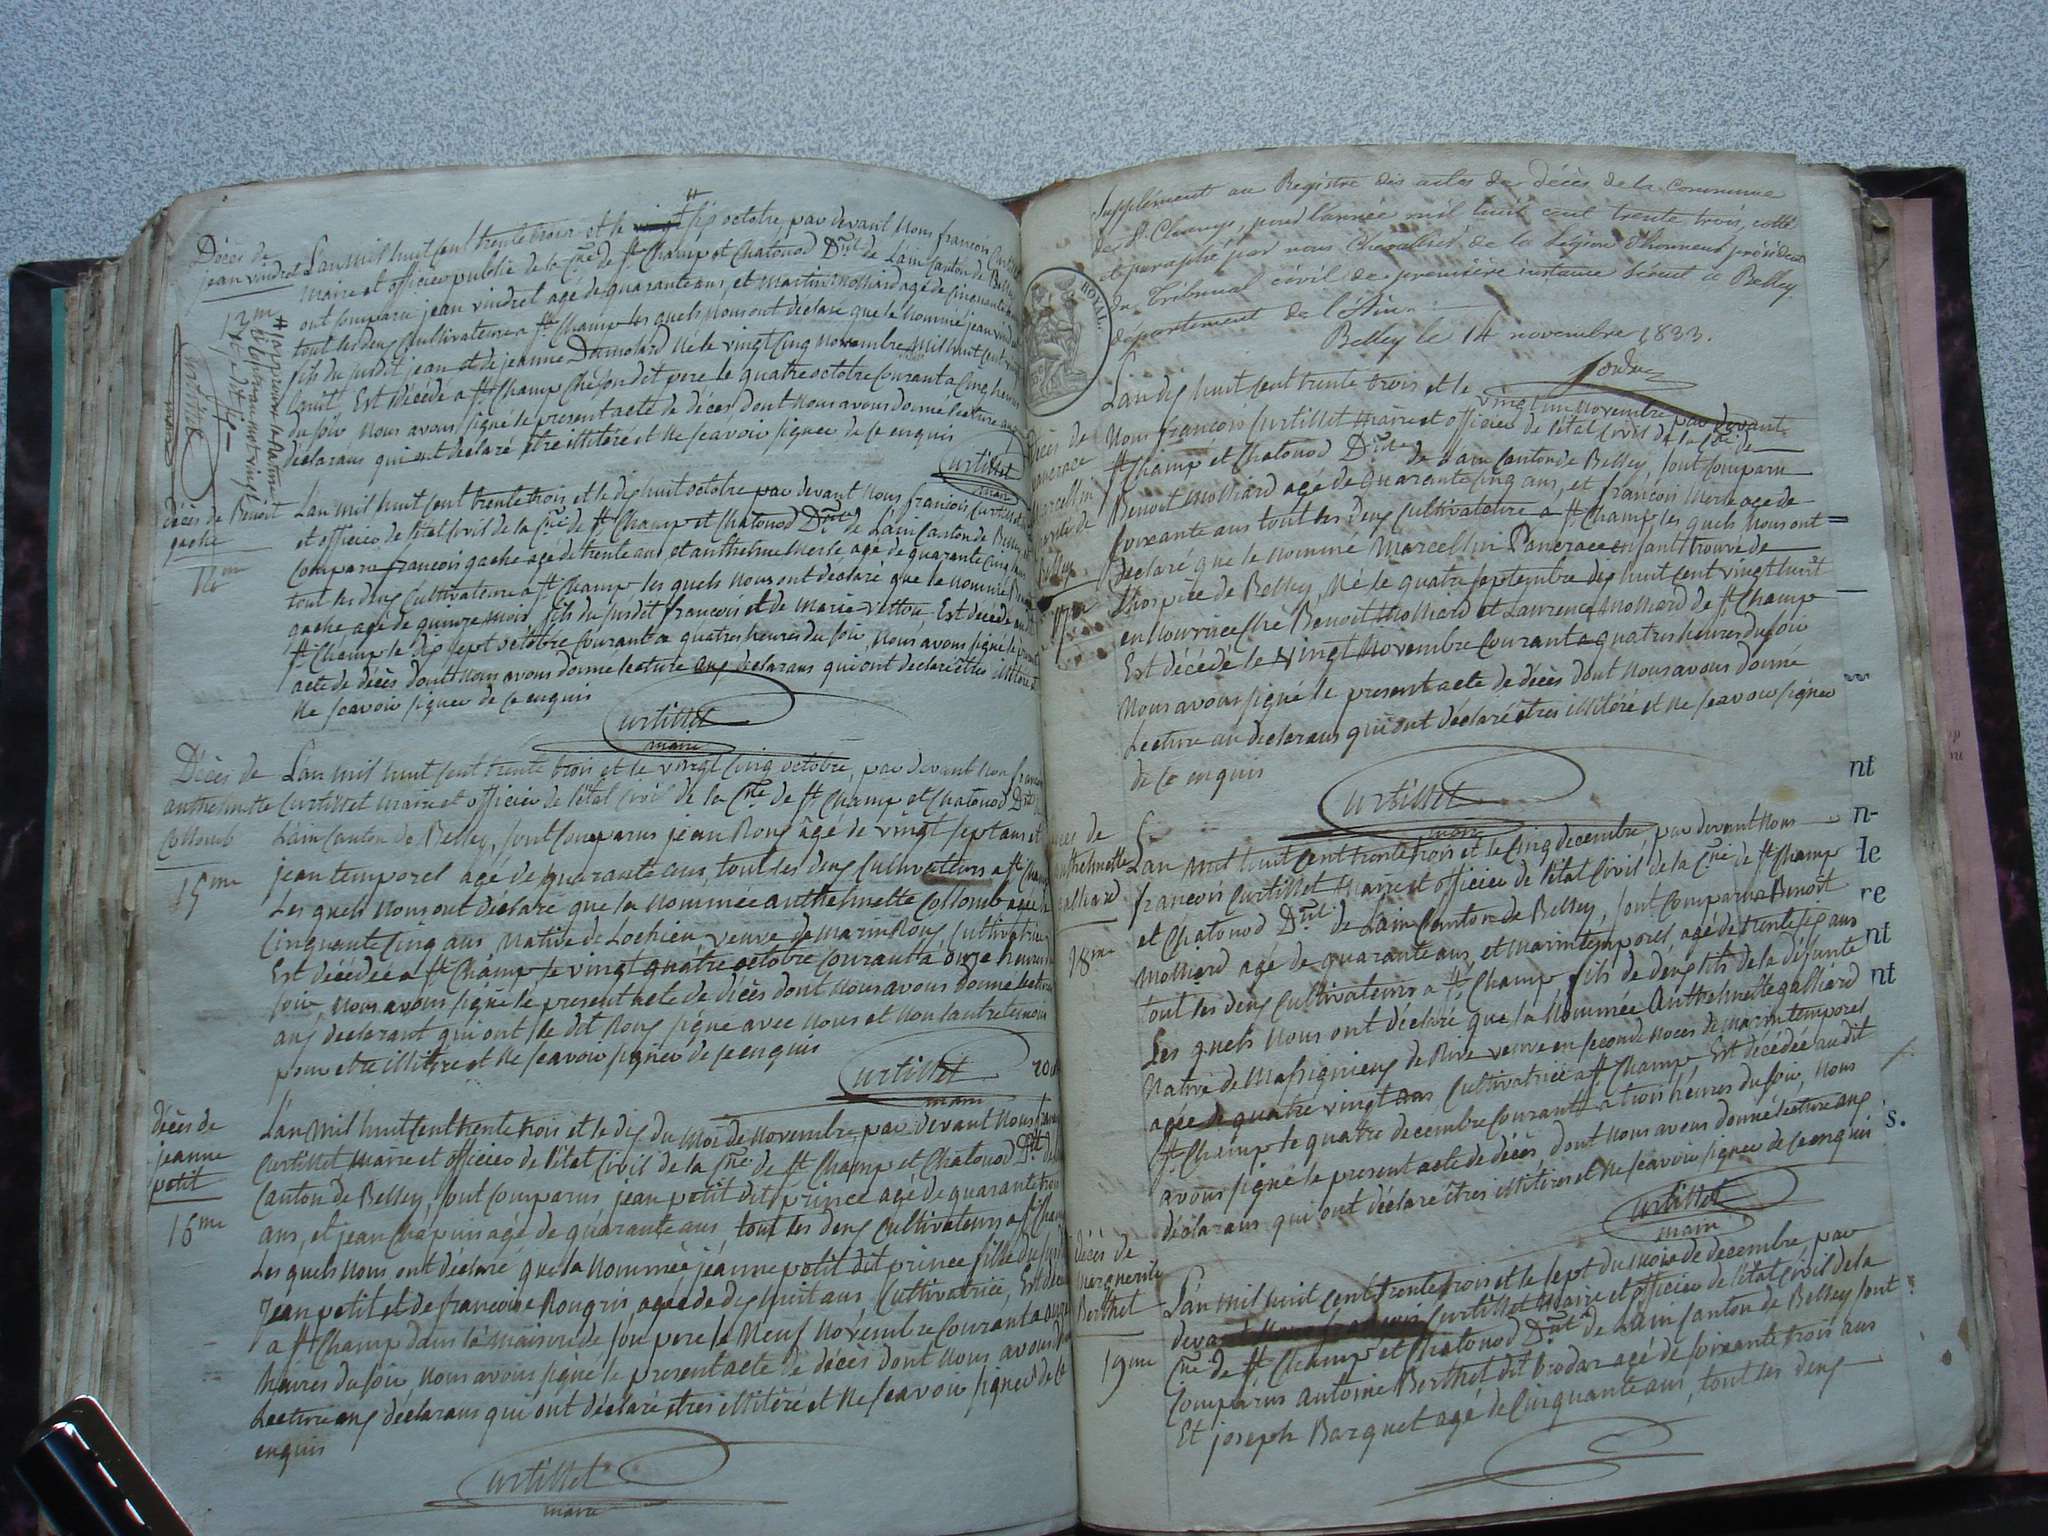 Décès de
jean vindret
13me
# approuvé la rature
Curtillet
maire
Lan mil huit cent trente trois et le vingt six octobre, par devant Nous françois
Maire et officier public de la Cne de St Champ et Chatonod Dmt de Lain Canton de Belley
ont comparu jean vindret agé de quarante ans, et Martin Molliard agé de cinquante
tout les deux Cultivateurs a St Champ les quels Nous ont declaré que le nommé jean
fils du susdit jean et de jeanne Dumolard Né le vingt cinq Novembre Mil huit Cent
huit Est décédé a St Champ ché son dit pere le quatre octobre Courant a Cinq heures
du soir Nous avons signé le present acte de décès dont Nous avons donné lecture aux
déclarans qui ont declaré être illiteré et Ne scavoir signer de Ce enquis
Curtillet
maire
Décès de Benoit
gache
14me
Lan mil huit Cent trente trois et le dix huit octobre par devant Nous françois Curtillet
et officier de létat Civil de la Cne de St Champ et Chatonod Dmt de Lain Canton de Belley
Comparu françois gache agé de trente ans et anthelme Merle agé de quarante Cinq
tout les deux Cultivateurs a St Champ les quels Nous ont déclaré que le nommé
gache, agé de quinze mois fils du susdit françois et de Marie Est décédé
St Champ le dix sept octobre Courant a quatres heures du soir, Nous avons signé le présent
acte de décès dont Nous avons donné lecture aux declarans qui ont declaré êtres
Ne scavoir signer de Ce enquis
Curtillet
maire
Décès de
anthelmette
Collomb
15me
Lan mil huit Cent trente trois et le vingt Cinq octobre, par devant Nous
Curtillet Maire et officier de létat Civil de la Cne de St Champ et Chatonod
Lain Canton de Belley, sont Comparus jean Roux âgé de vingt sept ans et
jean temporel agé de quarante ans, tout les deux Cultivateurs a St
Les quels Nous ont déclaré que la Nommée anthelmette Collomb
Cinquante Cinq ans, Native de Lochieu veuve de Marin Roux Cultivatrice
Est décédée a St Champ le vingt quatre octobre Courant a onze heures
soir, Nous avons signé le present acte de décès dont Nous avons donné
aux declarant qui ont le dit Roux signé avec Nous et Non lautre temoin
pour etre illitere et Ne scavoir signer de Ce enquis
Curtillet
maire
Décès de
jeanne
petit
16me
Lan Mil huit Cent trente trois et le dix du Moi de Novembre, par devant Nous
Curtillet Maire et officier de létat Civil de la Cne de St Champ et Chatonod
Canton de Belley, sont Comparus jean petit dit prince agé de quarante
ans, et jean Chapuis agé de quarante ans, tout les deux Cultivateurs a St
Les quels Nous ont déclaré que la Nommée jeanne petit dit prince fille du
Jean petit et de francoise agée de dix huit ans, Cultivatrice,
a St Champ dans la maison de son pere le Neuf Novembre Courant a
heures du soir Nous avons signé le present acte de décès dont Nous avons
Lecture aux déclarans qui ont déclaré etres illitéré et Ne scavoir signer de Ce
enquis
Curtillet
maire
Supplément au Registre des actes de décès de la Commune
de St Champ, pour l'année mil huit cent trente trois, cotté
et paraphé par nous Chevalier de la Légion d'honneur, président
du Tribunal civil de première instance séant à Belley
département de l'Ain.
Belley le 14 novembre 1833.
ROYAL.
Marcellin
17me
Lan dix huit Cent trente trois et le vingt un Novembre par devant
Nous françois Curtillet Maire et officier de létat Civil de la Cne de
St Champ et Chatonod Dmt de Lain Canton de Belley, sont Comparu
Benoit Molliard agé de Quarante Cinq ans, et françois Merle age de
soixante ans tout les deux Cultivateurs a St Champ les quels Nous ont
declaré que le nommé Marcellin Pancrace enfant trouvé de
Lhospice de Belley, Né le quatre septembre dix huit Cent vingt huit
en Nourrice ché Benoit Molliard et Laurence Molliard de St Champ
Est décédé le vingt Novembre Courant a quatres heures du soir
Nous avons signé le present acte de décès dont Nous avons donné
Lecture au declarans qui ont déclaré êtres illitéré et Ne scavoir signer
de Ce enquis
Curtillet
maire
de
anthelmette
galliard
18me
Lan Mil huit Cent trente trois et le Cinq décembre, par devant Nous
françois Curtillet Maire et officier de létat Civil de la Cne de St Champ
et Chatonod Dmt de Lain Canton de Belley, sont Comparus Benoit
Molliard agé de quarante ans, et Marin temporel, agé de trente six ans
tout les deux Cultivateurs a St Champ, fils de deux lits de la défunte
Les quels Nous ont déclaré que la Nommée Anthelmette galliard
Native de Massignieux de Rive veuve en seconde Noces de Marin temporel
agée de quatre vingt ans Cultivatrice a St Champ, Est décédée au dit
St Champ le quatre décembre Courant a trois heures du soir, Nous
avons signé le present acte de décès dont Nous avons donné lecture aux
déclarans qui ont déclaré êtres illitérés et Ne scavoir signer de Ce enquis
Curtillet
maire
Décès de
Marguerite
Berthet
19me
Lan Mil huit Cent trente trois et le sept du Mois de decembre par
devant Nous françois Curtillet Maire et officier de létat Civil de la
Cne de St Champ et Chatonod Dmt de Lain Canton de Belley sont
Comparus antoine Berthet dit Brodar agé de soixante trois ans
Et joseph Barquet agé de Cinquante ans, tout les deux
nt
n-
le
re
nt
nt
s.